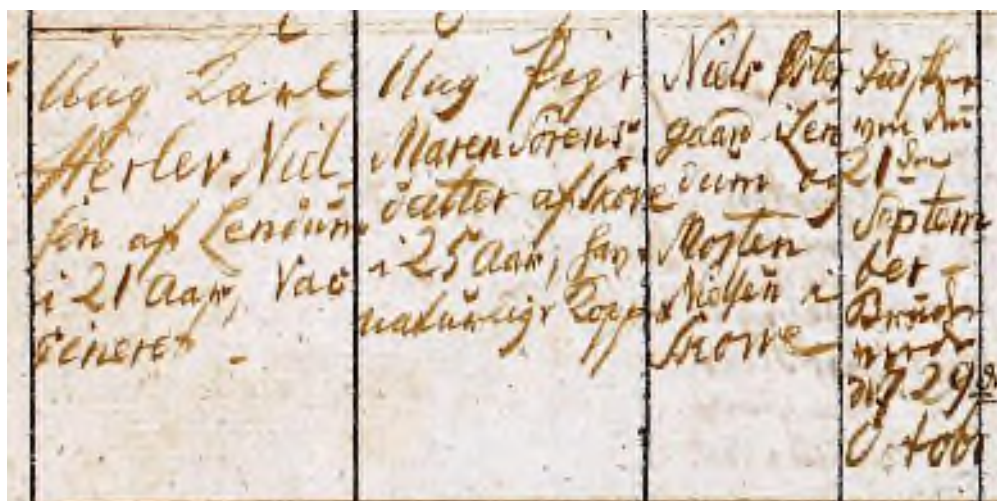 Ung Karl
Herlev Niel-
sen af Lendum
i 21 Aar, Vac
cineret -
Ung Pige
Maren Sørens
datter af Skove
i 25 Aar, hav
naturlige Kopper
Niels Øster
gaard i Len
dum og
Morten
Nielsen i
Skove
den
21de
Septem
ber -
29de
Octobr